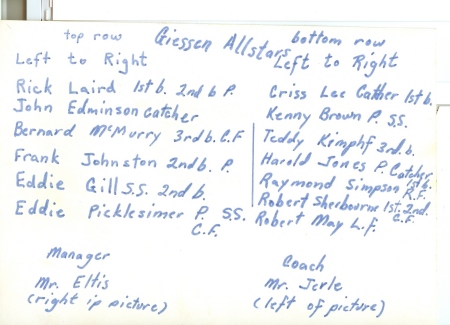 Giessen Allstars
top row
Left to Right
Rick Laird 1st b. 2nd b P.
John Edminson Catcher
Bernard McMurry 3rd b. C.F
Frank Johnston 2nd b. P.
Eddie Gill S.S. 2nd b.
Eddie Picklesimer P. S.S.
C.F.
bottom row
Left to Right
Criss Lee Cather 1st b.
Kenny Brown P. S.S.
Teddy Kimphf 3rd b.
Harold Jones P. Catcher
1st b.
Raymond Simpson R.F.
Robert Sherbourne 1st. 2nd.
C.F.
Robert May L.F.
Manager
Mr. Eltis
(right ip picture)
Coach
Mr. Jerle
(left of picture)